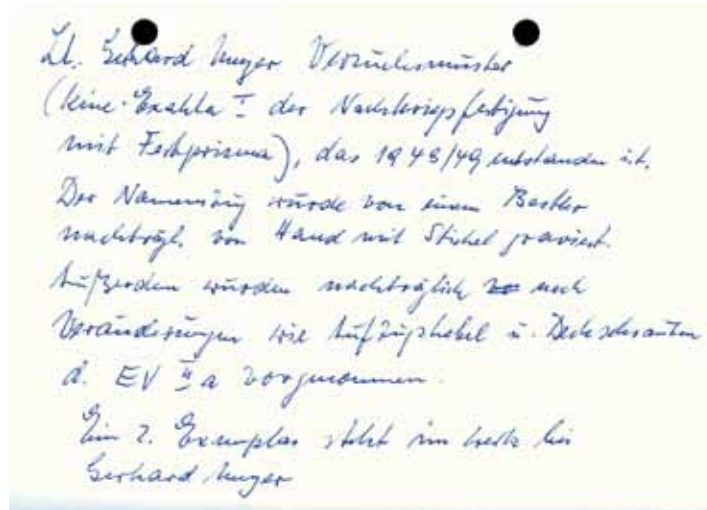 Lt. Gerhard Unger Versuchsmuster
(keine Exakta I der Nachkriegsfertigung
mit Festprisma), das 1948/49 entstanden ist.
Der Namenszug wurde von einem Bastler
nachträgl. von Hand mit Stichel graviert.
Außerdem wurden nachträglich noch
Veränderungen wie Aufzugshebel u. Deckschrauben
d. EV II a vorgenommen.
Ein 2. Exemplar steht im Werk bei
Gerhard Unger